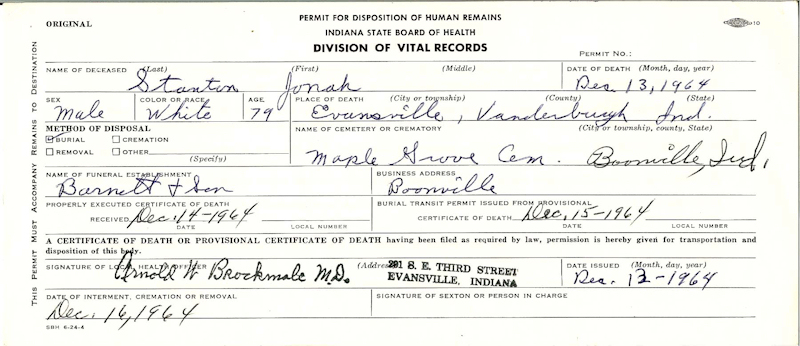 ORIGINAL
PERMIT FOR DISPOSITION OF HUMAN REMAINS
INDIANA STATE BOARD OF HEALTH
DIVISION OF VITAL RECORDS
10
PERMIT NO.:
THIS PERMIT MUST ACCOMPANY REMAINS TO DESTINATION
NAME OF DECEASED (Last) (First) (Middle) DATE OF DEATH (Month, day, year)
Stanton Jonah Dec. 13, 1964
SEX COLOR OR RACE AGE PLACE OF DEATH (City or township) (County) (State)
Male White 79 Evansville, Vanderburgh Ind.
METHOD OF DISPOSAL NAME OF CEMETERY OR CREMATORY (City or township, county, State)
BURIAL CREMATION
REMOVAL OTHER
(Specify)
Maple Grove Cem. Boonville, Ind.
NAME OF FUNERAL ESTABLISHMENT BUSINESS ADDRESS
Barnett & Son Boonville
PROPERLY EXECUTED CERTIFICATE OF DEATH BURIAL TRANSIT PERMIT ISSUED FROM PROVISIONAL
RECEIVED Dec. 14-1964 CERTIFICATE OF DEATH Dec. 15-1964
DATE LOCAL NUMBER DATE LOCAL NUMBER
A CERTIFICATE OF DEATH OR PROVISIONAL CERTIFICATE OF DEATH having been filed as required by law, permission is hereby given for transportation and
disposition of this body.
SIGNATURE OF LOCAL HEALTH OFFICER (Address) DATE ISSUED (Month, day, year)
Arnold W Brockmole M.D. 291 S. E. THIRD STREET
EVANSVILLE, INDIANA
Dec. 12-1964
DATE OF INTERMENT, CREMATION OR REMOVAL SIGNATURE OF SEXTON OR PERSON IN CHARGE
Dec. 16, 1964
SBH 6-24-4